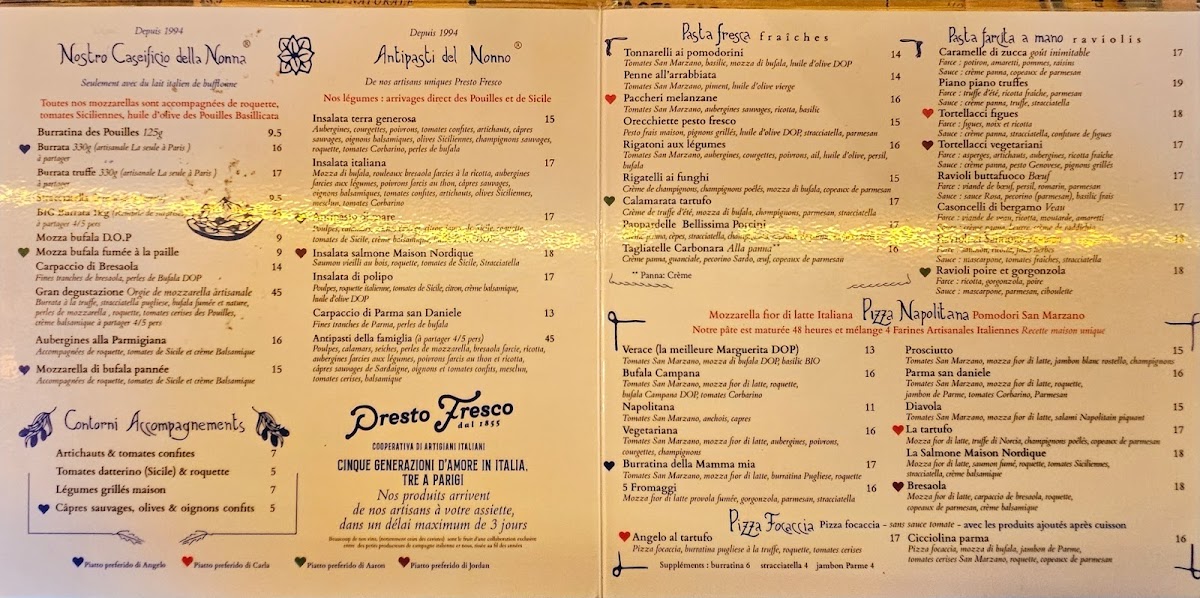 Depuis 1994
Nostro Caseificio della Nonna®
Seulement avec du lait italien de bufflonne
Toutes nos mozzarellas sont accompagnées de roquette,
tomates Siciliennes, huile d'olive des Pouilles Basilicata
Burratina des Pouilles 125g 9.5
Burrata 330g (artisanale La seule à Paris) 16
à partager
Burrata truffe 330g (artisanale La seule à Paris) 17
à partager
Stracciatella 9.5
BIG Burrata 1Kg
à partager 4/5 pers
Mozza bufala D.O.P 9
Mozza bufala fumée à la paille 9
Carpaccio di Bresaola 14
Fines tranches de bresaola, perles de Bufala DOP
Gran degustazione Orgie de mozzarella artisanale 45
Burrata à la truffe, stracciatella pugliese, bufala fumée et nature,
perles de mozzarella, roquette, tomates cerises des Pouilles,
crème balsamique à partager 4/5 pers
Aubergines alla Parmigiana 16
Accompagnées de roquette, tomates de Sicile et crème Balsamique
Mozzarella di bufala pannée 15
Accompagnées de roquette, tomates de Sicile et crème Balsamique
Contorni Accompagnements
Artichauts & tomates confites 7
Tomates datterino (Sicile) & roquette 5
Légumes grillés maison 7
Câpres sauvages, olives & oignons confits 5
Depuis 1994
Antipasti del Nonno®
De nos artisans uniques Presto Fresco
Nos légumes : arrivages direct des Pouilles et de Sicile
Insalata terra generosa 15
Aubergines, courgettes, poivrons, tomates confites, artichauts, câpres
sauvages, oignons balsamiques, olives Siciliennes, champignons sauvages,
roquette, tomates Corbarino, perles de bufala
Insalata italiana 17
Mozza di bufala, rouleaux bresaola farcies à la ricotta, aubergines
farcies aux légumes, poivrons farcis au thon, câpres sauvages,
oignons balsamiques, tomates confites, artichauts, olives Siciliennes,
mesclun, tomates Corbarino
Antipasto di mare 17
tomates de Sicile, crème
Insalata salmone Maison Nordique 18
Saumon vieilli au bois, roquette, tomates de Sicile, Stracciatella
Insalata di polipo 17
Poulpes, roquette italienne, tomates de Sicile, citron, crème balsamique,
huile d'olive DOP
Carpaccio di Parma san Daniele 13
Fines tranches de Parma, perles de bufala
Antipasti della famiglia (à partager 4/5 pers) 45
Poulpes, calamars, seiches, perles de mozzarella, bresaola farcie, ricotta,
aubergines farcies aux légumes, poivrons farcis au thon et ricotta,
câpres sauvages de Sardaigne, oignons et tomates confits, mesclun,
tomates cerises, balsamique
Presto Fresco
dal 1855
COOPERATIVA DI ARTIGIANI ITALIANI
CINQUE GENERAZIONI D'AMORE IN ITALIA,
TRE A PARIGI
Nos produits arrivent
de nos artisans à votre assiette,
dans un délai maximum de 3 jours
Beaucoup de nos vins, (notamment ceux des cavistes) sont le fruit d'une collaboration exclusive
Piatto preferido di Angelo
Piatto preferido di Carla
Piatto preferido di Aaron
Piatto preferido di Jordan
Pasta fresca fraîches
Tonnarelli ai pomodorini 14
Tomates San Marzano, basilic, mozza di bufala, huile d'olive DOP
Penne all'arrabbiata 14
Tomates San Marzano, piment, huile d'olive vierge
Paccheri melanzane 16
Tomates San Marzano, aubergines sauvages, ricotta, basilic
Orecchiette pesto fresco 15
Pesto frais maison, pignons grillés, huile d'olive DOP, stracciatella, parmesan
Rigatoni aux légumes 16
Tomates San Marzano, aubergines, courgettes, poivrons, ail, huile d'olive, persil,
bufala
Rigatelli ai funghi 15
Crème de champignons, champignons poêlés, mozza di bufala, copeaux de parmesan
Calamarata tartufo 17
Crème de truffe d'été, mozza di bufala, champignons, parmesan, stracciatella
Pappardelle Bellissima Porcini
Tagliatelle Carbonara Alla panna** 16
Crème panna, guanciale, pecorino Sardo, œuf, copeaux de parmesan
** Panna: Crème
Pasta farcita a mano raviolis
Caramelle di zucca goût inimitable 17
Farce : potiron, amaretti, pommes, raisins
Sauce : crème panna, copeaux de parmesan
Piano piano truffes 19
Farce : truffe d'été, ricotta fraîche, parmesan
Sauce : crème panna, truffe, stracciatella
Tortellacci figues 18
Farce : figues, noix et ricotta
Sauce : crème panna, stracciatella, confiture de figues
Tortellacci vegetariani 17
Farce : asperges, artichauts, aubergines, ricotta fraîche
Sauce : crème panna, pesto Genovese, pignons grillés
Ravioli buttafuoco Bœuf 17
Farce : viande de bœuf, persil, romarin, parmesan
Sauce : sauce Rosa, pecorino (parmesan), basilic frais
Casoncelli di bergamo Veau 17
Farce : viande de veau, ricotta, moutarde, amaretti
Sauce : mascarpone, tomates fraîches, stracciatella
Ravioli poire et gorgonzola 18
Farce : ricotta, gorgonzola, poire
Sauce : mascarpone, parmesan, ciboulette
Mozzarella fior di latte Italiana Pizza Napolitana Pomodori San Marzano
Notre pâte est maturée 48 heures et mélange 4 Farines Artisanales Italiennes Recette maison unique
Verace (la meilleure Marguerita DOP) 13
Tomates San Marzano, mozza di bufala DOP, basilic BIO
Bufala Campana 16
Tomates San Marzano, mozza fior di latte, roquette,
bufala Campana DOP, tomates Corbarino
Napolitana 11
Tomates San Marzano, anchois, capres
Vegetariana 16
Tomates San Marzano, mozza fior di latte, aubergines, poivrons,
courgettes, champignons
Burratina della Mamma mia 17
Tomates San Marzano, mozza fior di latte, burratina Pugliese, roquette
5 Fromaggi 16
Mozza fior di latte provola fumée, gorgonzola, parmesan, stracciatella
Prosciutto 15
Tomates San Marzano, mozza fior di latte, jambon blanc rostello, champignons
Parma san daniele 16
Tomates San Marzano, mozza fior di latte, roquette,
jambon de Parme, tomates Corbarino, Parmesan
Diavola 15
Tomates San Marzano, mozza fior di latte, salami Napolitain piquant
La tartufo 17
Mozza fior di latte, truffe di Norcia, champignons poêlés, copeaux de parmesan
La Salmone Maison Nordique 18
Mozza fior di latte, saumon fumé, roquette, tomates Siciliennes,
stracciatella, crème balsamique
Bresaola 18
Mozza fior di latte, carpaccio de bresaola, roquette,
copeaux de parmesan, crème balsamique
Pizza Focaccia Pizza focaccia - sans sauce tomate - avec les produits ajoutés après cuisson
Angelo al tartufo 17
Pizza focaccia, burratina pugliese à la truffe, roquette, tomates cerises
Suppléments : burratina 6 stracciatella 4 jambon Parme 4
Cicciolina parma 16
Pizza focaccia, mozza di bufala, jambon de Parme,
tomates cerises San Marzano, roquette, copeaux de parmesan